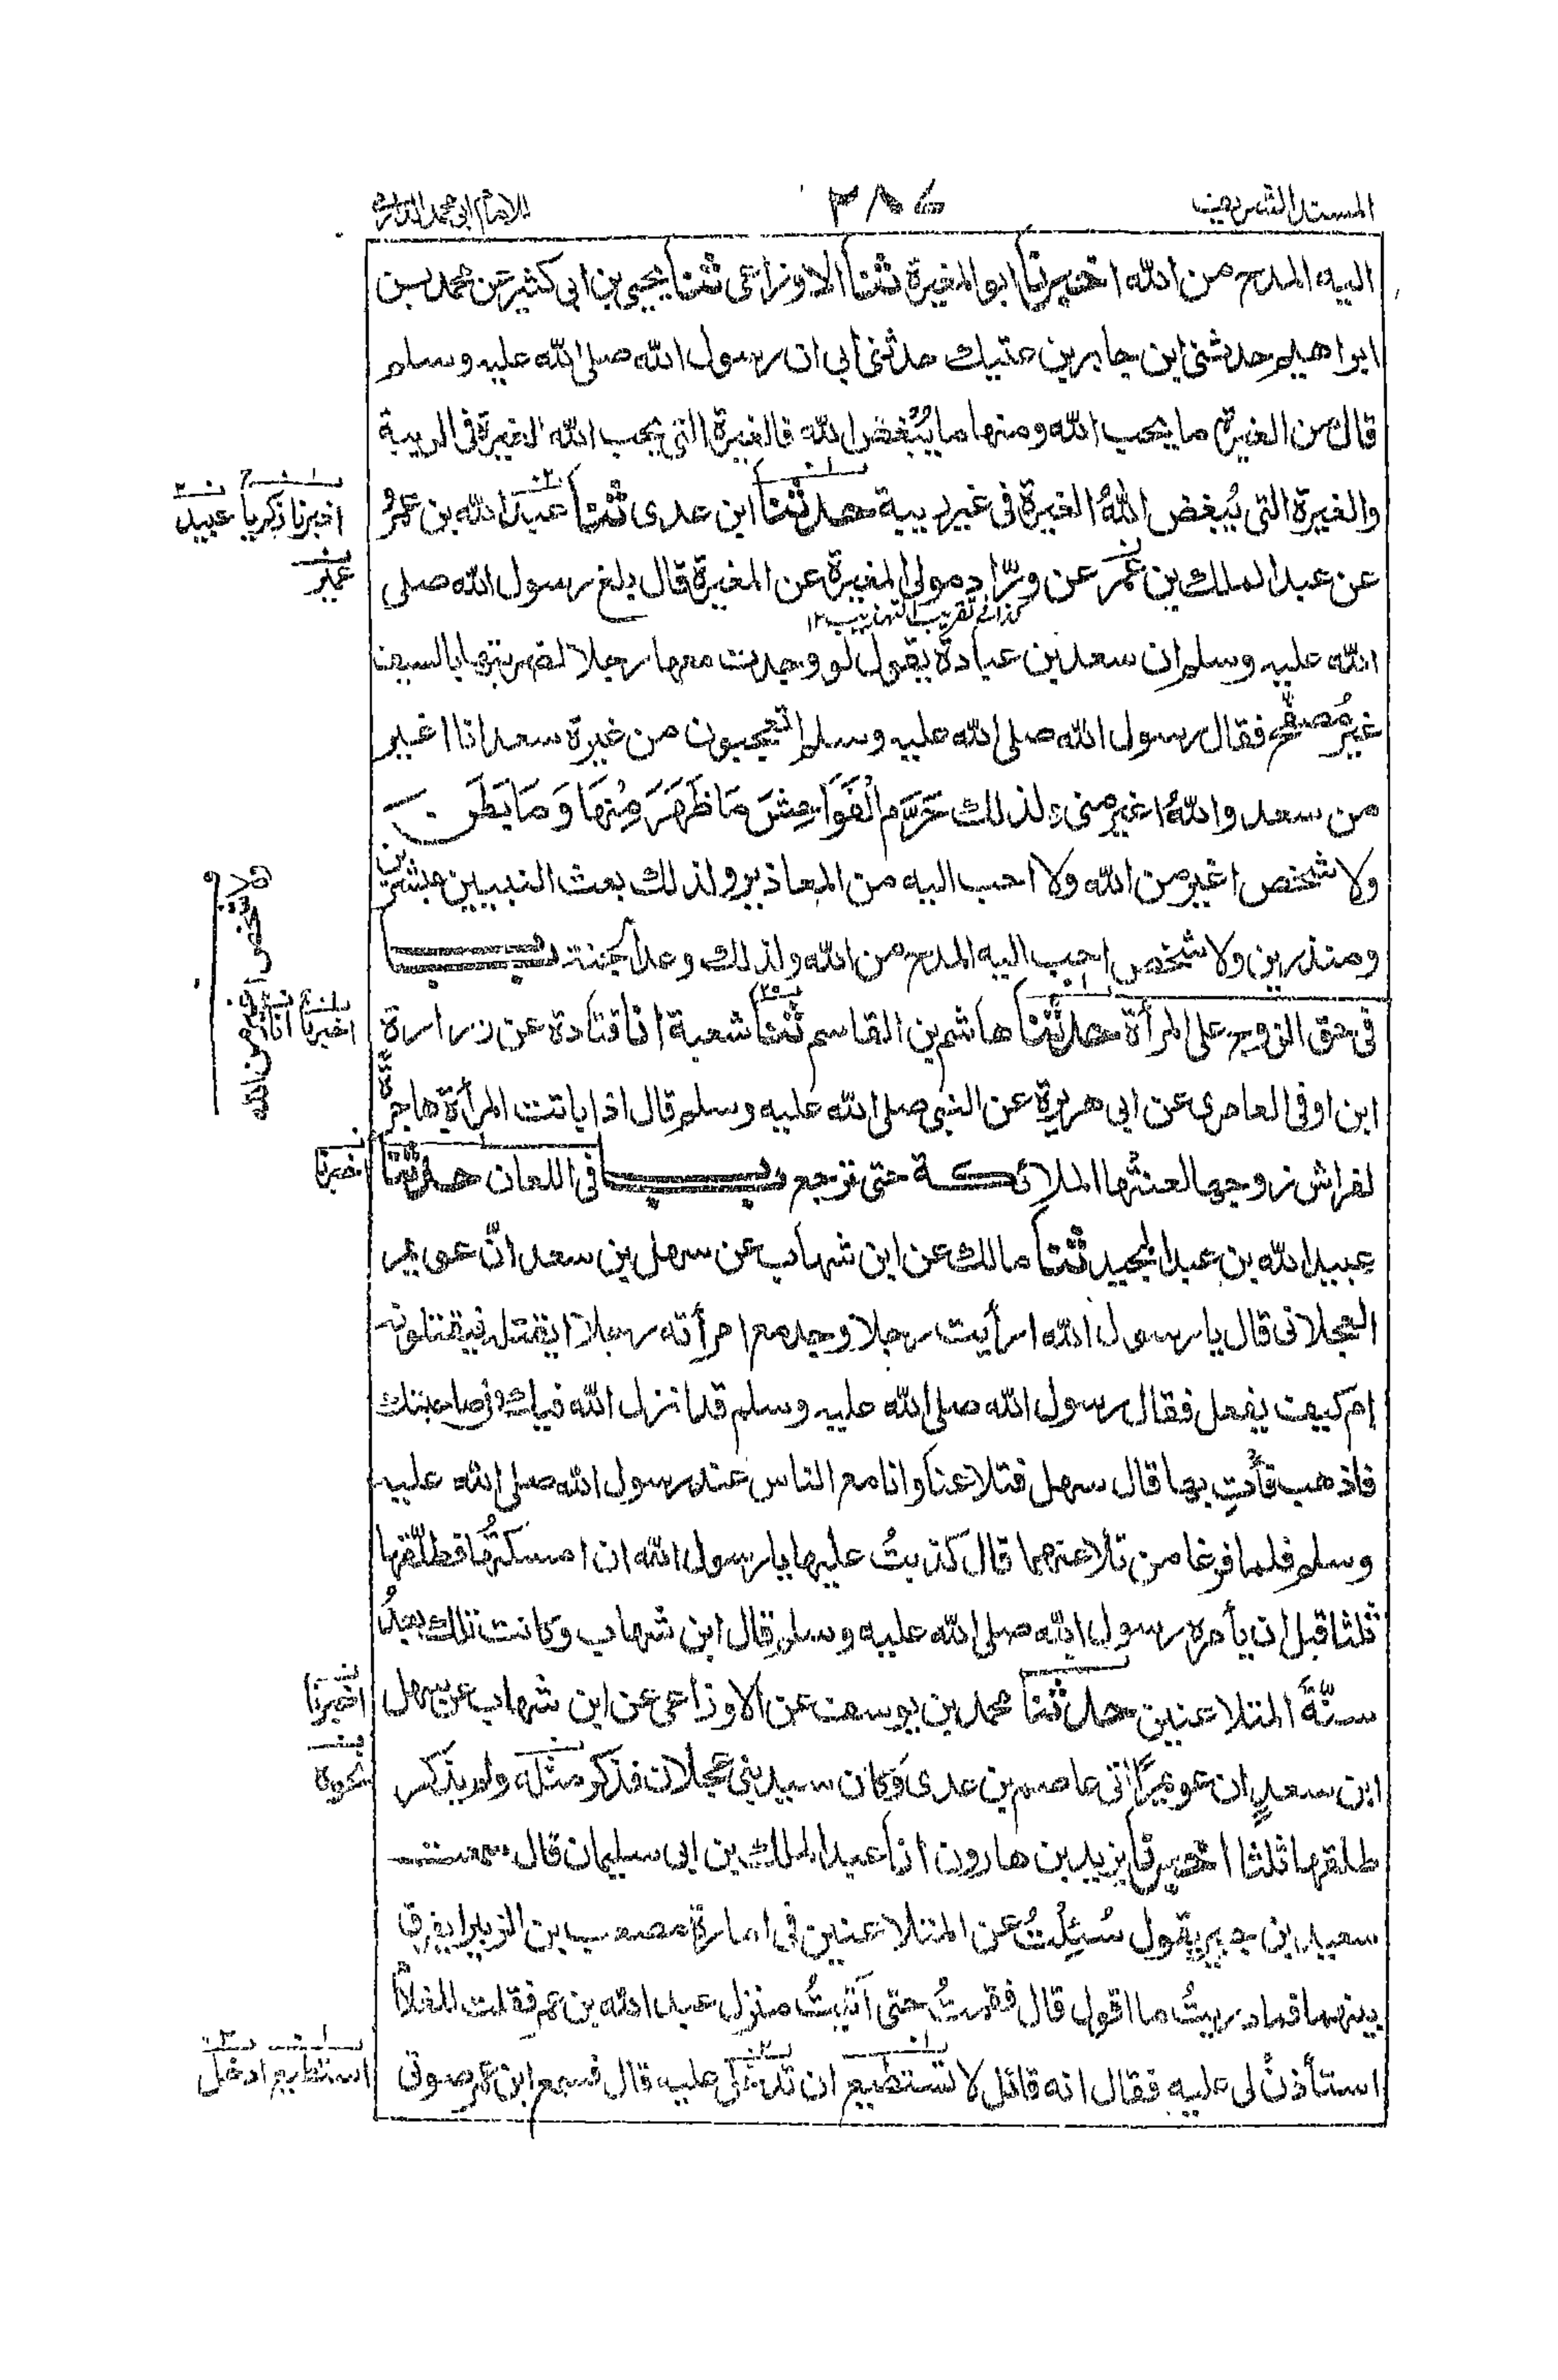 المسند الشريف
٣٨٤
للامام ابى محمد الدارمى
اليه المدح من الله اخبرنا ابو المغيرة ثنا الاوزاعى ثنا يحيى بن ابى كثير عن محمد بن
ابراهيم حدثنى ابن جابر بن عتيك حدثنى ابى ان رسول الله صلى الله عليه وسلم
قال من الغيرة ما يحب الله ومنها ما يُبْغض الله فالغيرة التى يحب الله الغيرة فى الريبة
والغيرة التى يُبغض اللهُ الغيرة فى غير ريبية حدثنا ابن عدى ثنا عبد الله بن عمرو
اخبرنا زكريا عبيد
عن عبد الملك بن عُمَر عن ورّاد مولى المغيرة عن المغيرة قال بلغ رسول الله صلى
عمير
كذا فى تقريب التهذيب ١٢
الله عليه وسلم ان سعد بن عبادة يقول لو وجدت معها رجلا لضربتها بالسيف
غيرُ مُصفَح فقال رسول الله صلى الله عليه وسلم اتعجبون من غيرة سعد انا اغير
من سعد واللهُ اغير منى ولذلك حَرَّم الْفَوَاحِشَ مَا ظَهَرَ مِنْهَا وَمَا بَطَنَ
ولا شخص اغير من الله ولا احب اليه من المعاذير ولذلك بعث النبيين مبشرين
ومنذرين ولا شخص احب اليه المدح من الله ولذلك وعد الجنة باب
ولا شخص اغير من الله
فى حق الزوج على المرأة حدثنا هاشم بن القاسم ثنا شعبة انا قتادة عن زرارة
اخبرنا انا
ابن اوفى العامرى عن ابى هريرة عن النبى صلى الله عليه وسلم قال اذا باتت المرأة هاجرة
لفراش زوجها لعنتْها الملائكة حتى ترجع باب فى اللعان حدثنا
اخبرنا
عبيد الله بن عبد المجيد ثنا مالك عن ابن شهاب عن سهل بن سعد انّ عويمر
العجلانى قال يا رسول الله ارأيت رجلا وجد مع امرأته رجلا ايقتله فيقتلونه
ام كيف يفعل فقال رسول الله صلى الله عليه وسلم قد انزل الله فيك وفى صاحبتك
فاذهب فأتِ بها قال سهل فتلاعنا وانا مع الناس عند رسول الله صلى الله عليه
وسلم فلما فرغا من تلاعنهما قال كذبتُ عليها يا رسول الله ان امسكتُها فطلّقها
ثلثا قبل ان يأمره رسول الله صلى الله عليه وسلم قال ابن شهاب وكانت تلك بعدُ
سنّةَ المتلاعنين حدثنا محمد بن يوسف عن الاوزاعى عن ابن شهاب عن سهل
اخبرنا
ابن سعدٍ ان عويمرًا اتى عاصم بن عدى وَكان سيد بنى عجلان فذكر مثله ولم يذكر
نحوه
طلقها ثلثا اخبرنا يزيد بن هارون انا عبد الملك بن ابى سليمان قال سمعت
سعيد بن جبير يقول سُئِلْتُ عن المتلاعنين فى امارة مصعب بن الزبير ايفرق
بينهما فما دريتُ ما اقول قال فقمتُ حتى أتيتُ منزل عبد الله بن عمر فقلت للغلام
استأذنْ لى عليه فقال انه قائل لا تستطيع ان تدخل عليه قال فسمع ابن عمر صوتى
استطيع ادخل